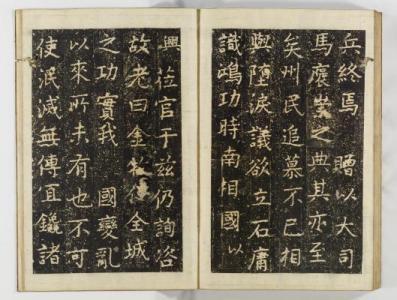 兵終焉賵以大司
馬襃贈之典其亦至
矣州民追慕不已相
與墮淚議欲立石庸
識鴻功時南相國以
興莅官于兹仍詢咨
故老曰全德全城
之功實我國變亂
以來所未有也不可
使泯滅無傳宜鑱諸